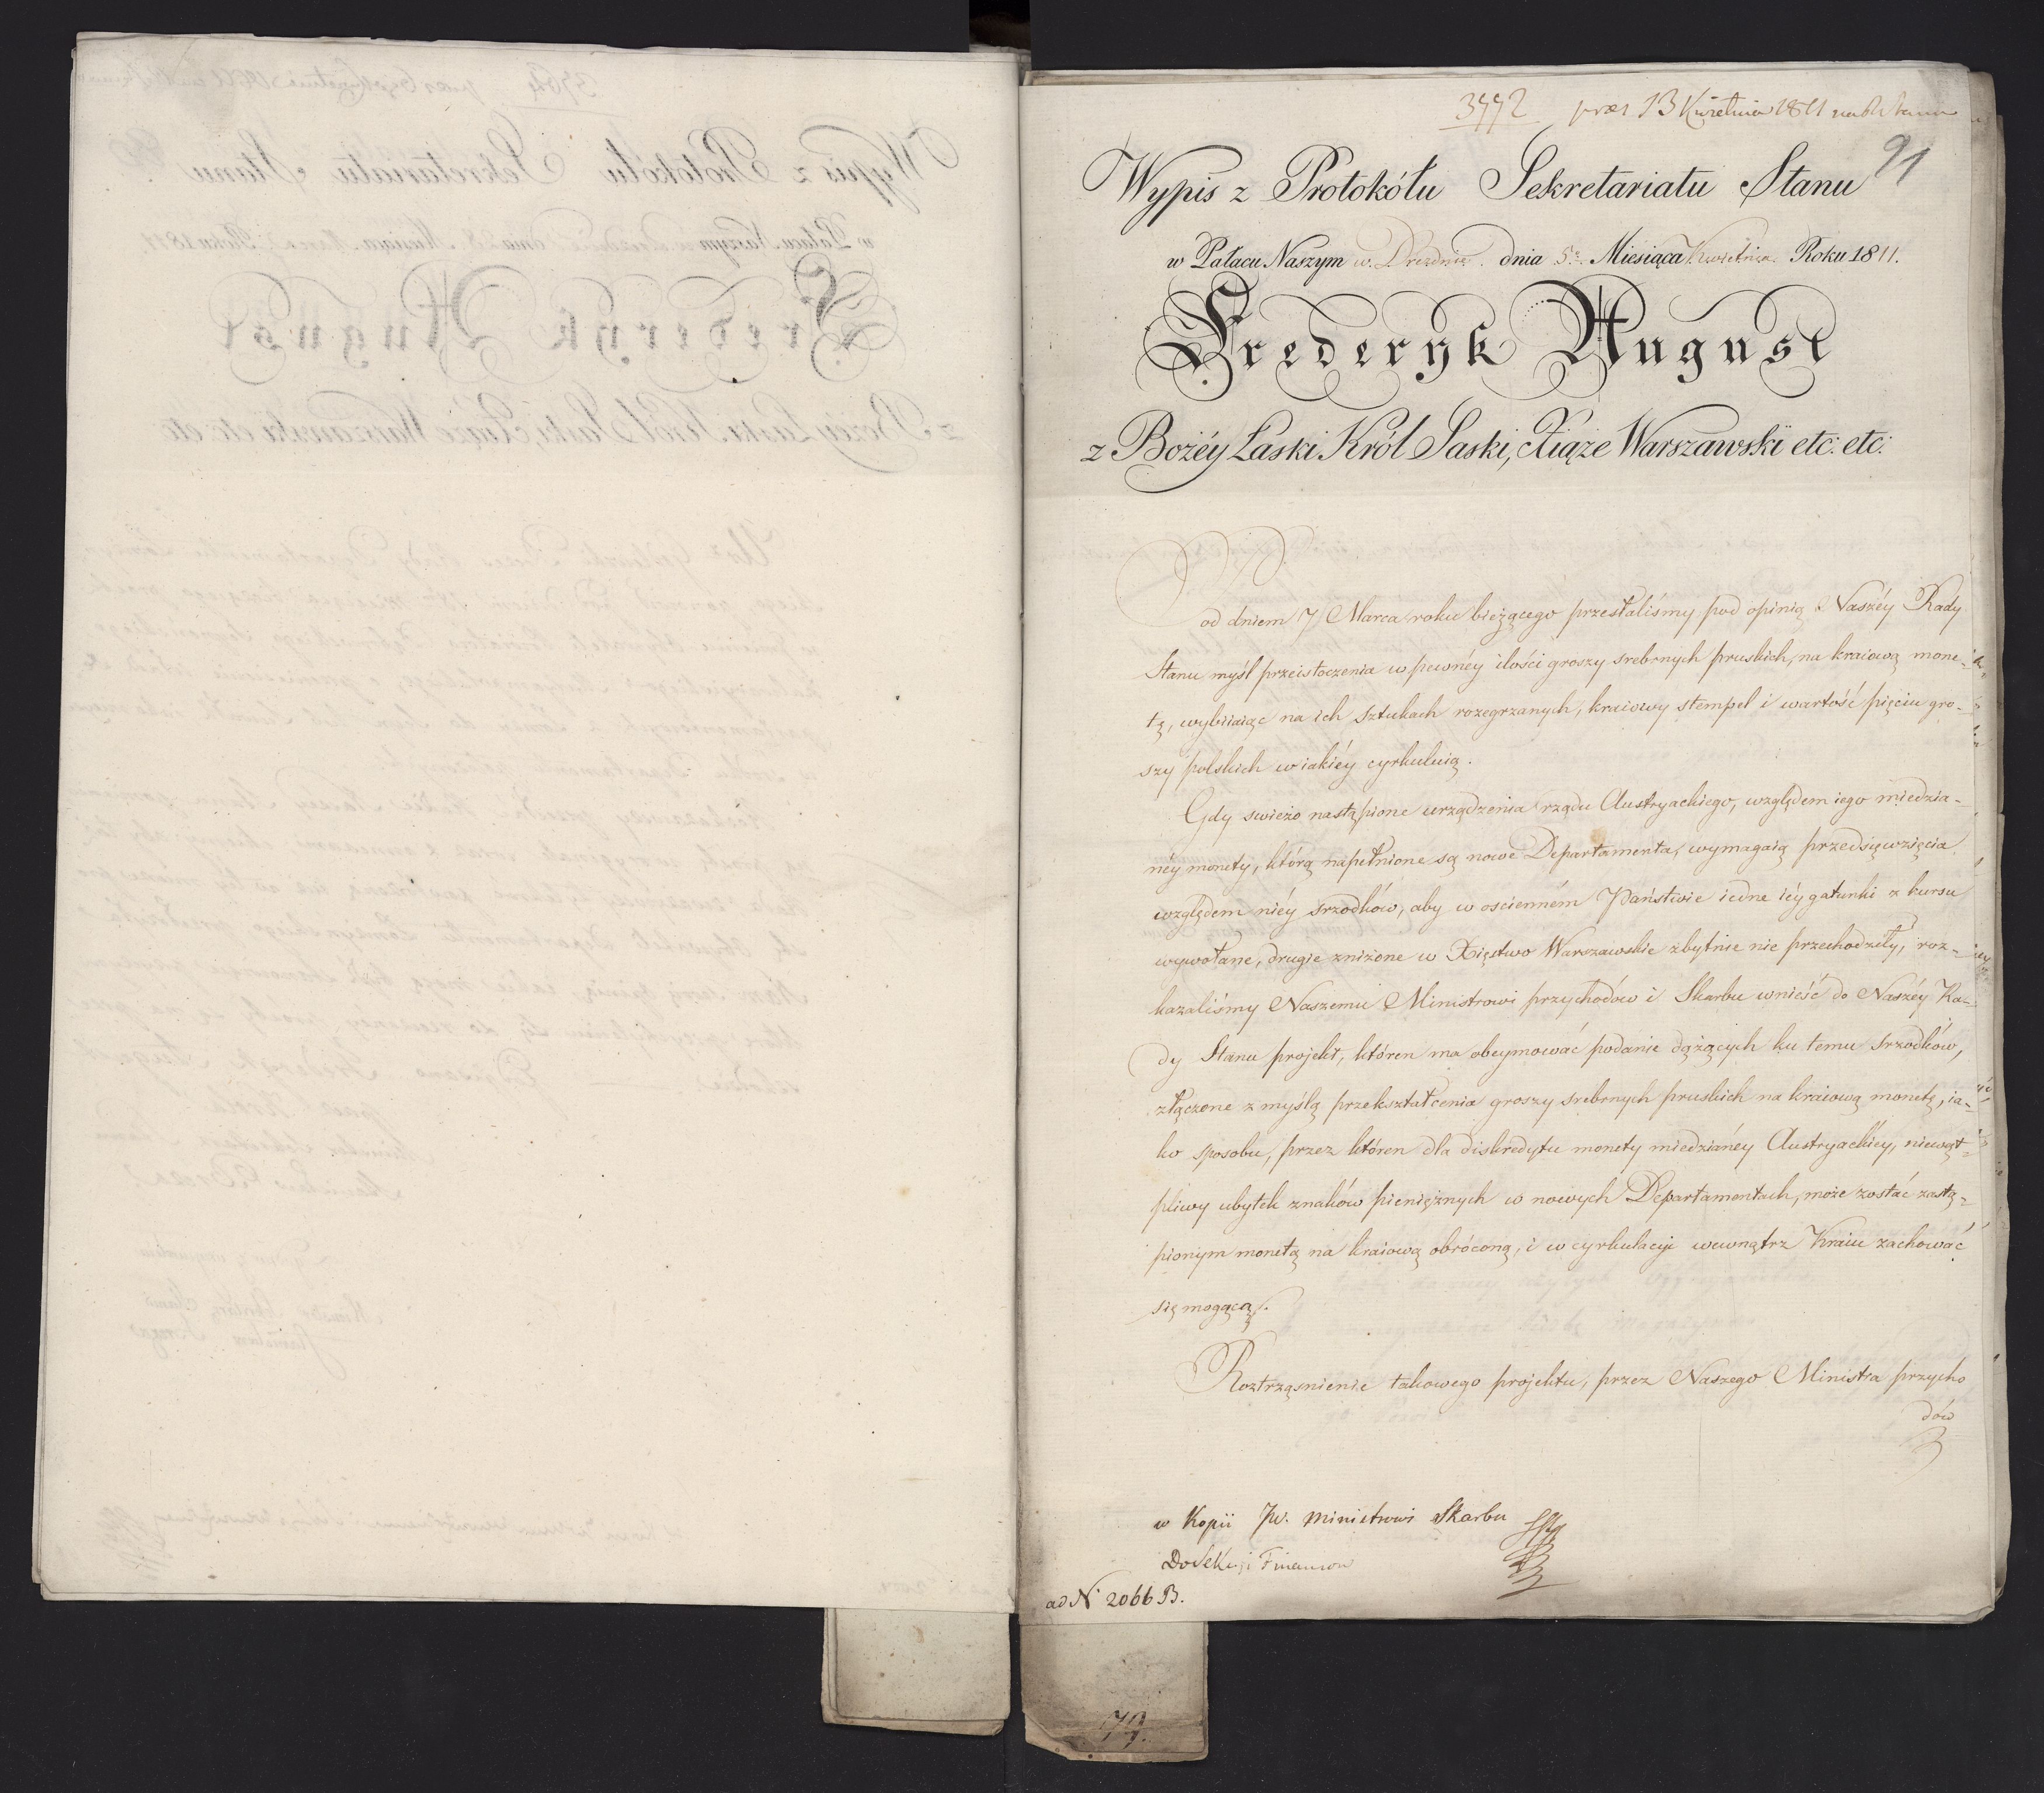 3992 præs 13 Kwietnia 1811
91
Wypis z Protokółu Sekretariatu Stanu
w Pałacu Naszym w. Dreznie. dnia 5º Miesiąca Kwietnia. Roku 1811.
Frederyk August
z Bożéy Łaski Król Saski, Xiąże Warszawski etc: etc:
Pod dniem 7 Marca roku bieżącego przesłaliśmy pod opinią Naszéy Rady
Stanu myśl przeistoczenia w pewnéy ilości groszy srebrnych pruskich, na kraiową mone-
tę, wybiiaiąc na ich sztukach rozegrzanych, kraiowy stempel i wartość pięciu gro-
szy polskich w iakiéy cyrkuluią.
Gdy swieżo nastąpione urządzenia rządu Austryackiego, względem iego miedzia-
néy monety, którą napełnione są nowe Departamenta, wymagaią przedsięwzięcia
względem niéy srzodków, aby w oscienném Państwie iedne iéy gatunki z kursu
wywołane, drugie zniżone w Xięstwo Warszawskie zbytnie nie przechodziły, roz-
kazaliśmy Naszemu Ministrowi przychodów i Skarbu wnieść do Naszéy Ra-
dy Stanu projekt, któren ma obeymować podanie dążących ku temu srzodków,
złączone z myślą przekształcenia groszy srebrnych pruskich na kraiową monetę, ia-
ko sposobu, przez któren dla diskredytu monety miedzianéy Austryackiéy, niewąt-
pliwy ubytek znaków pieniężnych w nowych Departamentach, może zostać zastą-
pionym monetą na kraiową obróconą, i w cyrkulacyi wewnątrz Kraiu zachować
się mogącą.
Roztrząsnienie takowego projektu, przez Naszego Ministra przycho
dów
w Kopii JW. Ministrowi Skarbu
Do Sekcji Finansow
ad N 2066 B.
79.